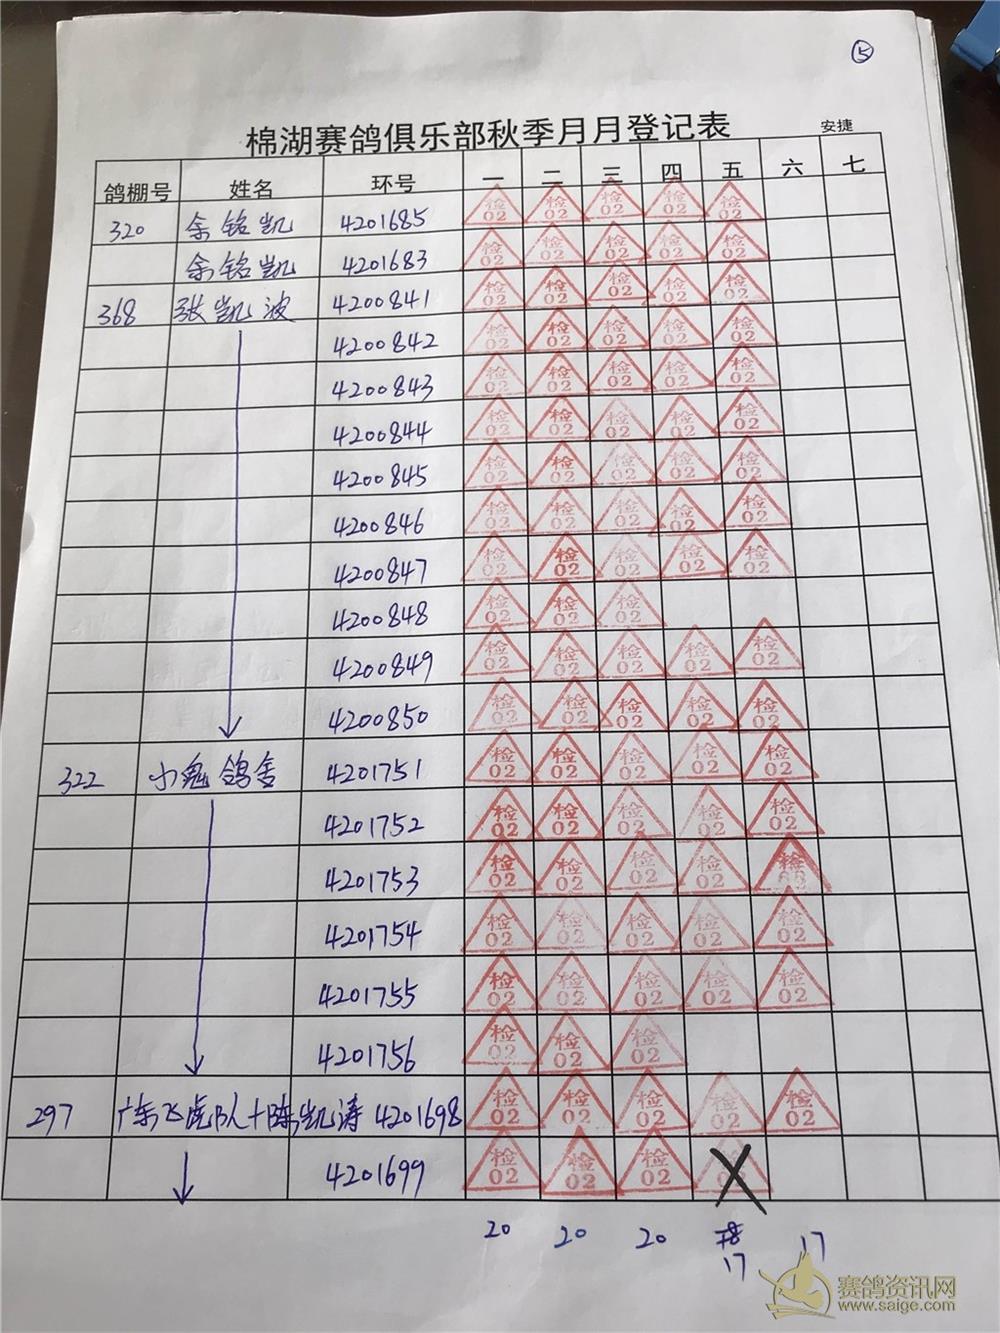 ⑤
棉湖赛鸽俱乐部秋季月月登记表 安捷
鸽棚号 姓名 环号 一 二 三 四 五 六 七
320 余铭凯 4201685 检02 检02 检02 检02 检02
余铭凯 4201683 检02 检02 检02 检02 检02
368 张凯波 4200841 检02 检02 检02 检02 检02
4200842 检02 检02 检02 检02 检02
4200843 检02 检02 检02 检02 检02
4200844 检02 检02 检02 检02 检02
4200845 检02 检02 检02 检02 检02
4200846 检02 检02 检02 检02 检02
4200847 检02 检02 检02 检02 检02
4200848 检02 检02 检02
4200849 检02 检02 检02 检02 检02
4200850 检02 检02 检02 检02 检02
322 小鬼鸽舍 4201751 检02 检02 检02 检02 检02
4201752 检02 检02 检02 检02 检02
4201753 检02 检02 检02 检02 检
4201754 检02 检02 检02 检02 检02
4201755 检02 检02 检02 检02 检02
4201756 检02 检02 检02
297 广东飞虎队+陈凯涛 4201698 检02 检02 检02 检02 检02
4201699 检02 检02 检02
20 20 20 17 17
赛鸽资讯网
www.saige.com